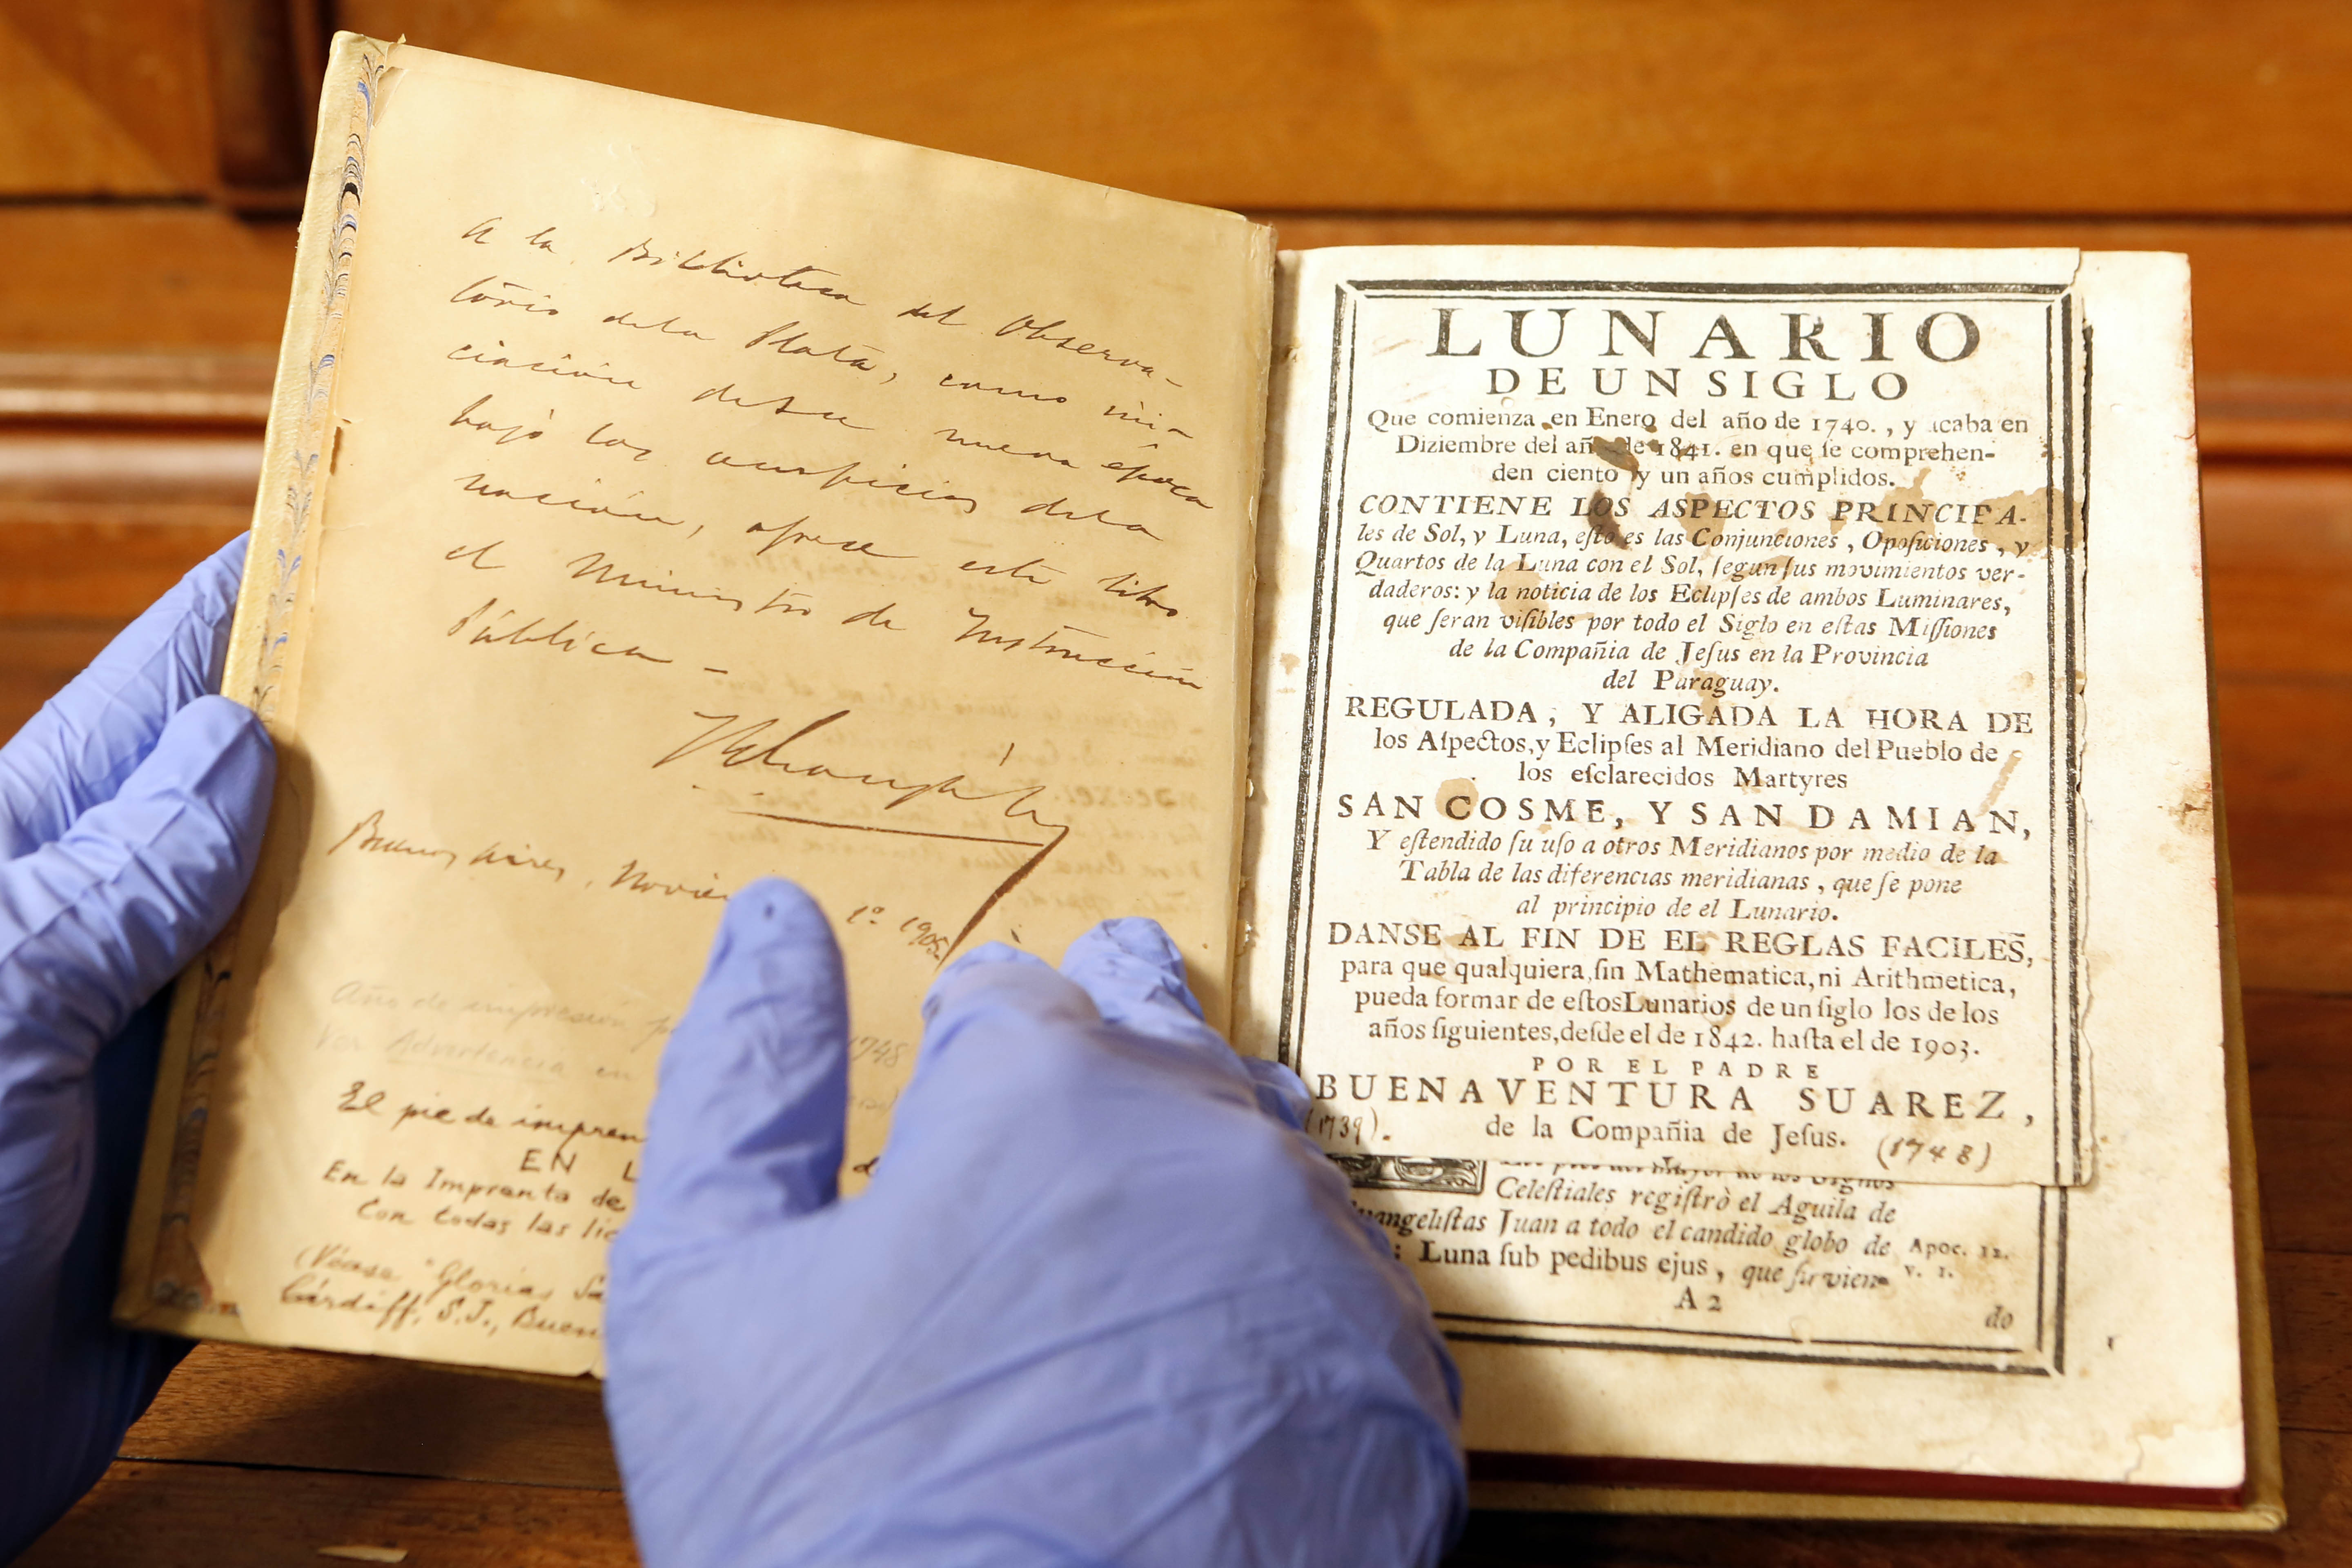 A la Biblioteca del Observa-
torio de la Plata, como ini-
ciación de su nueva época
bajo los auspicios de la
nación, ofrece este libro
el Ministro de Instrucción
Pública -
Buenos Aires, Noviem 1º 1905.
Año de impresión 1748
Ver Advertencia en
El pie de impren
EN L
En la Imprenta de
Con todas las lic
(Véase "Glorias Sa
Cárdiff, S.J., Buen
LUNARIO
DE UN SIGLO
Que comienza en Enero del año de 1740., y acaba en
Diziembre del año de 1841. en que ſe comprehen-
den ciento y un años cumplidos.
CONTIENE LOS ASPECTOS PRINCIPA-
les de Sol, y Luna, eſto es las Conjunciones, Opoſiciones, y
Quartos de la Luna con el Sol, ſegun ſus movimientos ver-
daderos: y la noticia de los Eclipſes de ambos Luminares,
que ſeran viſibles por todo el Siglo en eſtas Miſſiones
de la Compañia de Jeſus en la Provincia
del Paraguay.
REGULADA, Y ALIGADA LA HORA DE
los Aſpectos, y Eclipſes al Meridiano del Pueblo de
los eſclarecidos Martyres
SAN COSME, Y SAN DAMIAN,
Y eſtendido ſu uſo a otros Meridianos por medio de la
Tabla de las diferencias meridianas, que ſe pone
al principio de el Lunario.
DANSE AL FIN DE EL REGLAS FACILES,
para que qualquiera, ſin Mathematica, ni Arithmetica,
pueda formar de eſtos Lunarios de un ſiglo los de los
años ſiguientes, deſde el de 1842. haſta el de 1903.
POR EL PADRE
BUENAVENTURA SUAREZ,
(1739). de la Compañia de Jeſus. (1748)
Celeſtiales regiſtrò el Aguila de
vangeliſtas Juan a todo el candido globo de Apoc. 12.
: Luna ſub pedibus ejus, que ſirvien- v. 1.
A 2
do